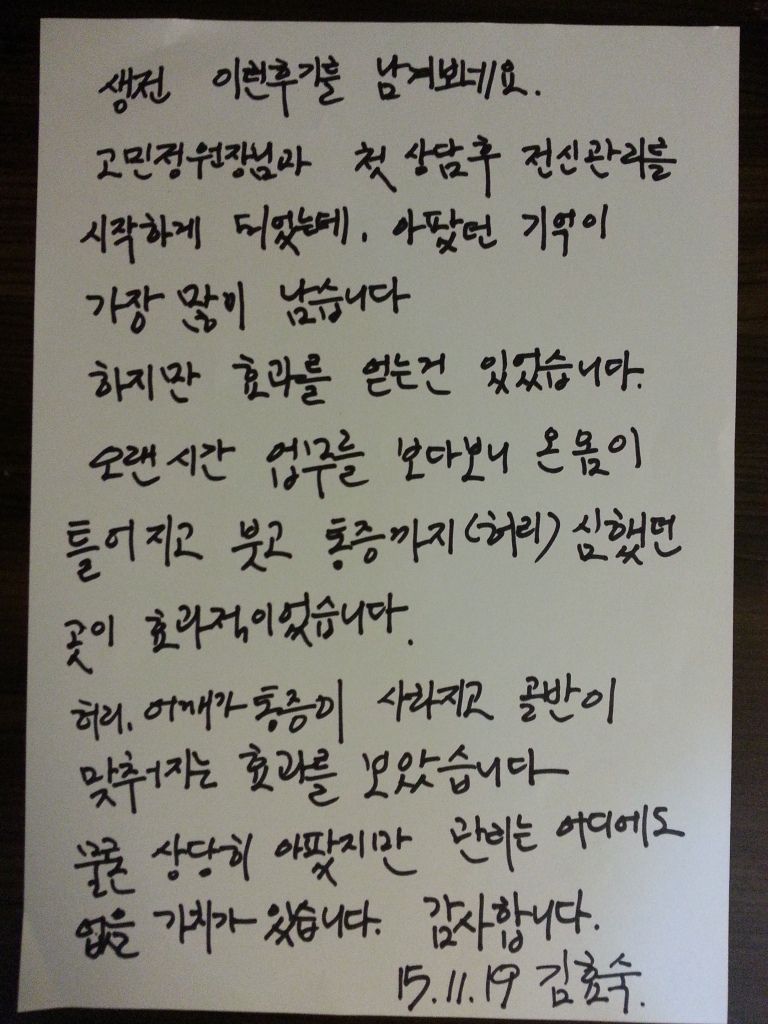 생전 이런후기를 남겨보네요.
고민정원장님과 첫 상담후 전신관리를
시작하게 되었는데, 아팠던 기억이
가장 많이 남습니다
하지만 효과를 얻는건 있었습니다.
오랜시간 업무를 보다보니 온몸이
틀어지고 붓고 통증까지(허리) 심했던
곳이 효과적이었습니다.
허리, 어깨가 통증이 사라지고 골반이
맞추어지는 효과를 보았습니다
물론 상당히 아팠지만 관리는 어디에도
없을 가치가 있습니다. 감사합니다.
15.11.19 김효숙.